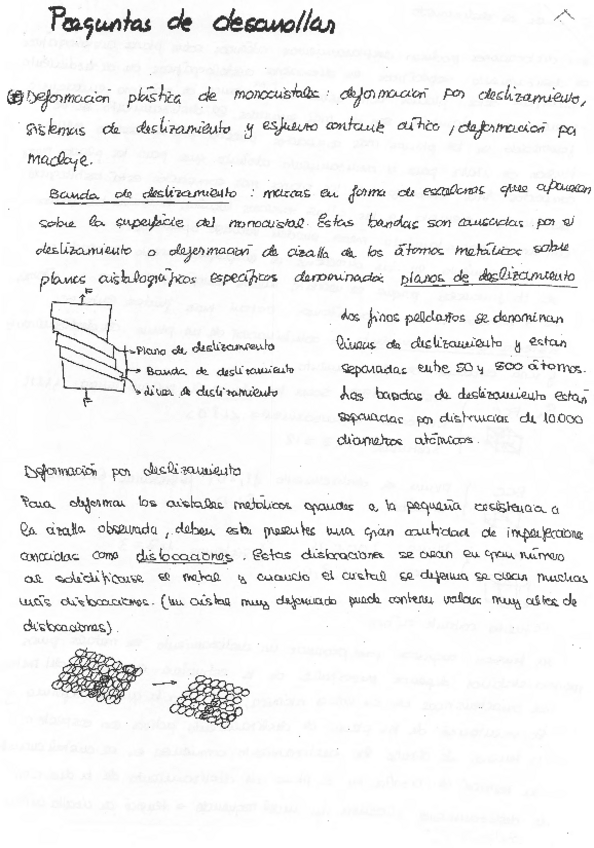 Preguntas de desarrollar
Deformación plástica de monocristales: deformación por deslizamiento,
sistemas de deslizamiento y esfuerzo cortante crítico, deformación por
maclaje.
Banda de deslizamiento: marcas en forma de escalones que aparecen
sobre la superficie del monocristal. Estas bandas son causadas por el
deslizamiento o deformación de cizalla de los átomos metálicos sobre
planos cristalográficos específicos denominados planos de deslizamiento
F
Plano de deslizamiento
Banda de deslizamiento
línea de deslizamiento
F
Los finos peldaños se denominan
líneas de deslizamiento y están
separadas entre 50 y 500 átomos.
Las bandas de deslizamiento están
separadas por distancias de 10.000
diámetros atómicos.
Deformación por deslizamiento
Para deformar los cristales metálicos grandes a la pequeña resistencia a
la cizalla observada, deben estar presentes una gran cantidad de imperfecciones
conocidas como dislocaciones. Estas dislocaciones se crean en gran número
al solidificarse el metal y cuando el cristal se deforma se crean muchas
más dislocaciones. (Un cristal muy deformado puede contener valores muy altos de
dislocaciones).